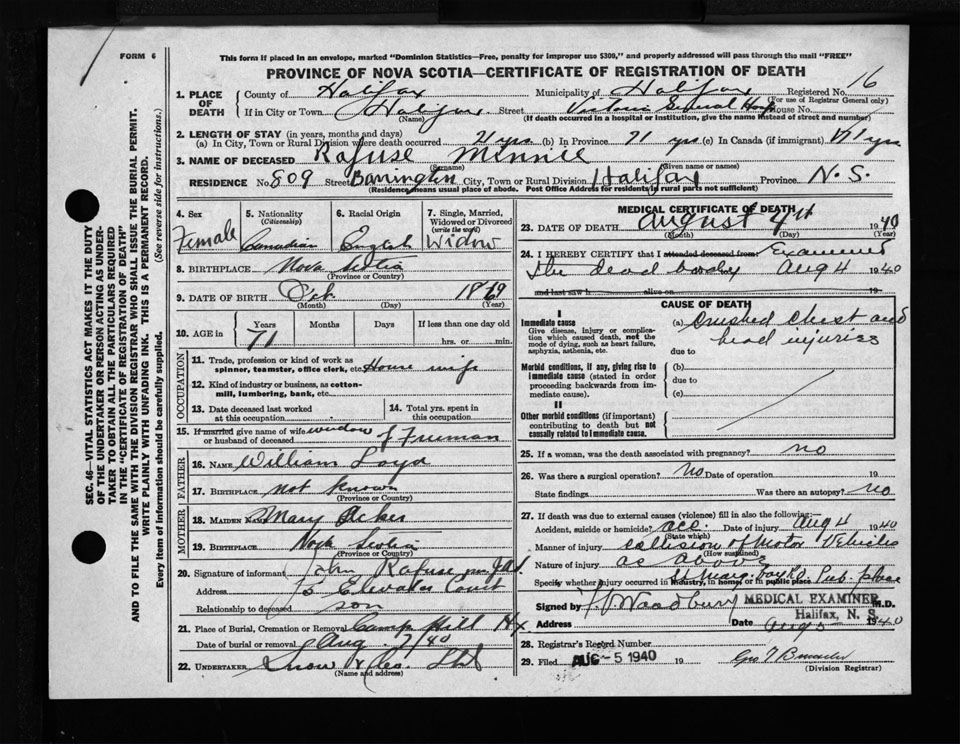 FORM 6
This form if placed in an envelope, marked "Dominion Statistics—Free, penalty for improper use $300," and properly addressed will pass through the mail "FREE"
PROVINCE OF NOVA SCOTIA—CERTIFICATE OF REGISTRATION OF DEATH
1. PLACE OF DEATH
County of Halifax Municipality of Halifax Registered No. 16
(For use of Registrar General only)
If in City or Town Halifax Street Victoria General Hosp House No.
(Name) (If death occurred in a hospital or institution, give the name instead of street and number)
2. LENGTH OF STAY (in years, months and days)
(a) In City, Town or Rural Division where death occurred 21 yrs (b) In Province 71 yrs (c) In Canada (if immigrant) 71 yrs
3. NAME OF DECEASED Rafuse Minnie
(Surname) (Given name or names)
RESIDENCE No. 809 Street Barrington City, Town or Rural Division Halifax Province N.S.
(Residence means usual place of abode. Post Office Address for residents in rural parts not sufficient)
4. Sex
Female
5. Nationality
(Citizenship)
Canadian
6. Racial Origin
English
7. Single, Married, Widowed or Divorced
(write the word)
Widow
8. BIRTHPLACE Nova Scotia
(Province or Country)
9. DATE OF BIRTH Oct. 1869
(Month) (Day) (Year)
10. AGE in
Years Months Days If less than one day old
71 hrs. or min.
OCCUPATION
11. Trade, profession or kind of work as
spinner, teamster, office clerk, etc. House wife
12. Kind of industry or business, as cotton-
mill, lumbering, bank, etc.
13. Date deceased last worked
at this occupation
14. Total yrs. spent in
this occupation
15. If married give name of wife widow
or husband of deceased of Freeman
FATHER
16. NAME William Loyd
17. BIRTHPLACE not known
(Province or Country)
MOTHER
18. MAIDEN NAME Mary Acker
19. BIRTHPLACE Nova Scotia
(Province or Country)
20. Signature of informant John Rafuse
Address 15 Elevator Court
Relationship to deceased son
21. Place of Burial, Cremation or Removal Camp Hill Hx
Date of burial or removal Aug 7/40
22. UNDERTAKER Snow & Co. Ltd
(Name and address)
MEDICAL CERTIFICATE OF DEATH
23. DATE OF DEATH August 4th 1940
(Month) (Day) (Year)
24. I HEREBY CERTIFY that I attended deceased from: Examined
the dead body Aug 4 1940
and last saw h alive on 19
CAUSE OF DEATH
I
Immediate cause
Give disease, injury or complica-
tion which caused death, not the
mode of dying, such as heart failure,
asphyxia, asthenia, etc.
(a) Crushed Chest and
head injuries
due to
Morbid conditions, if any, giving rise to
immediate cause (stated in order
proceeding backwards from im-
mediate cause).
(b)
due to
(c)
II
Other morbid conditions (if important)
contributing to death but not
causally related to immediate cause.
25. If a woman, was the death associated with pregnancy? no
26. Was there a surgical operation? No Date of operation 19
State findings Was there an autopsy? no
27. If death was due to external causes (violence) fill in also the following:—
Accident, suicide or homicide? acc. Date of injury Aug 4 1940
(State which)
Manner of injury collision of Motor Vehicles
(How sustained)
Nature of injury as above
Specify whether injury occurred in industry, in home, or in public place Pub. place
Signed by Woodbury M.D.
MEDICAL EXAMINER
Halifax, N. S.
Address Date Aug 5 1940
28. Registrar's Record Number
29. Filed AUG -5 1940 19
(Division Registrar)
SEC. 46—VITAL STATISTICS ACT MAKES IT THE DUTY
OF THE UNDERTAKER OR PERSON ACTING AS UNDER-
TAKER TO OBTAIN ALL THE PARTICULARS REQUIRED
IN THE "CERTIFICATE OF REGISTRATION OF DEATH"
AND TO FILE THE SAME WITH THE DIVISION REGISTRAR WHO SHALL ISSUE THE BURIAL PERMIT.
WRITE PLAINLY WITH UNFADING INK. THIS IS A PERMANENT RECORD.
Every item of information should be carefully supplied. (See reverse side for instructions.)